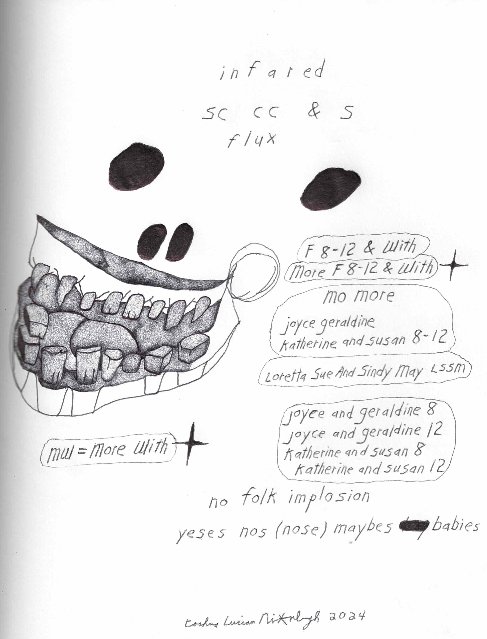 infared
SC CC & S
flux
F 8-12 & With
More F8-12 & With
mo more
joyce geraldine
katherine and susan 8-12
Loretta Sue And Sindy May LSSM
joyce and geraldine 8
joyce and geraldine 12
katherine and susan 8
katherine and susan 12
mw = More With
no folk implosion
yeses nos (nose) maybes babies
2024